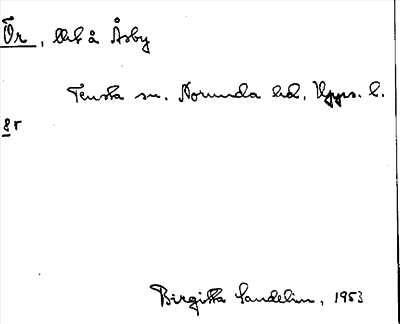 Ör, bbt å Åsby
Tensta sn. Norunda hd, Upps. l.
ör
Birgitta Sandelin, 1953